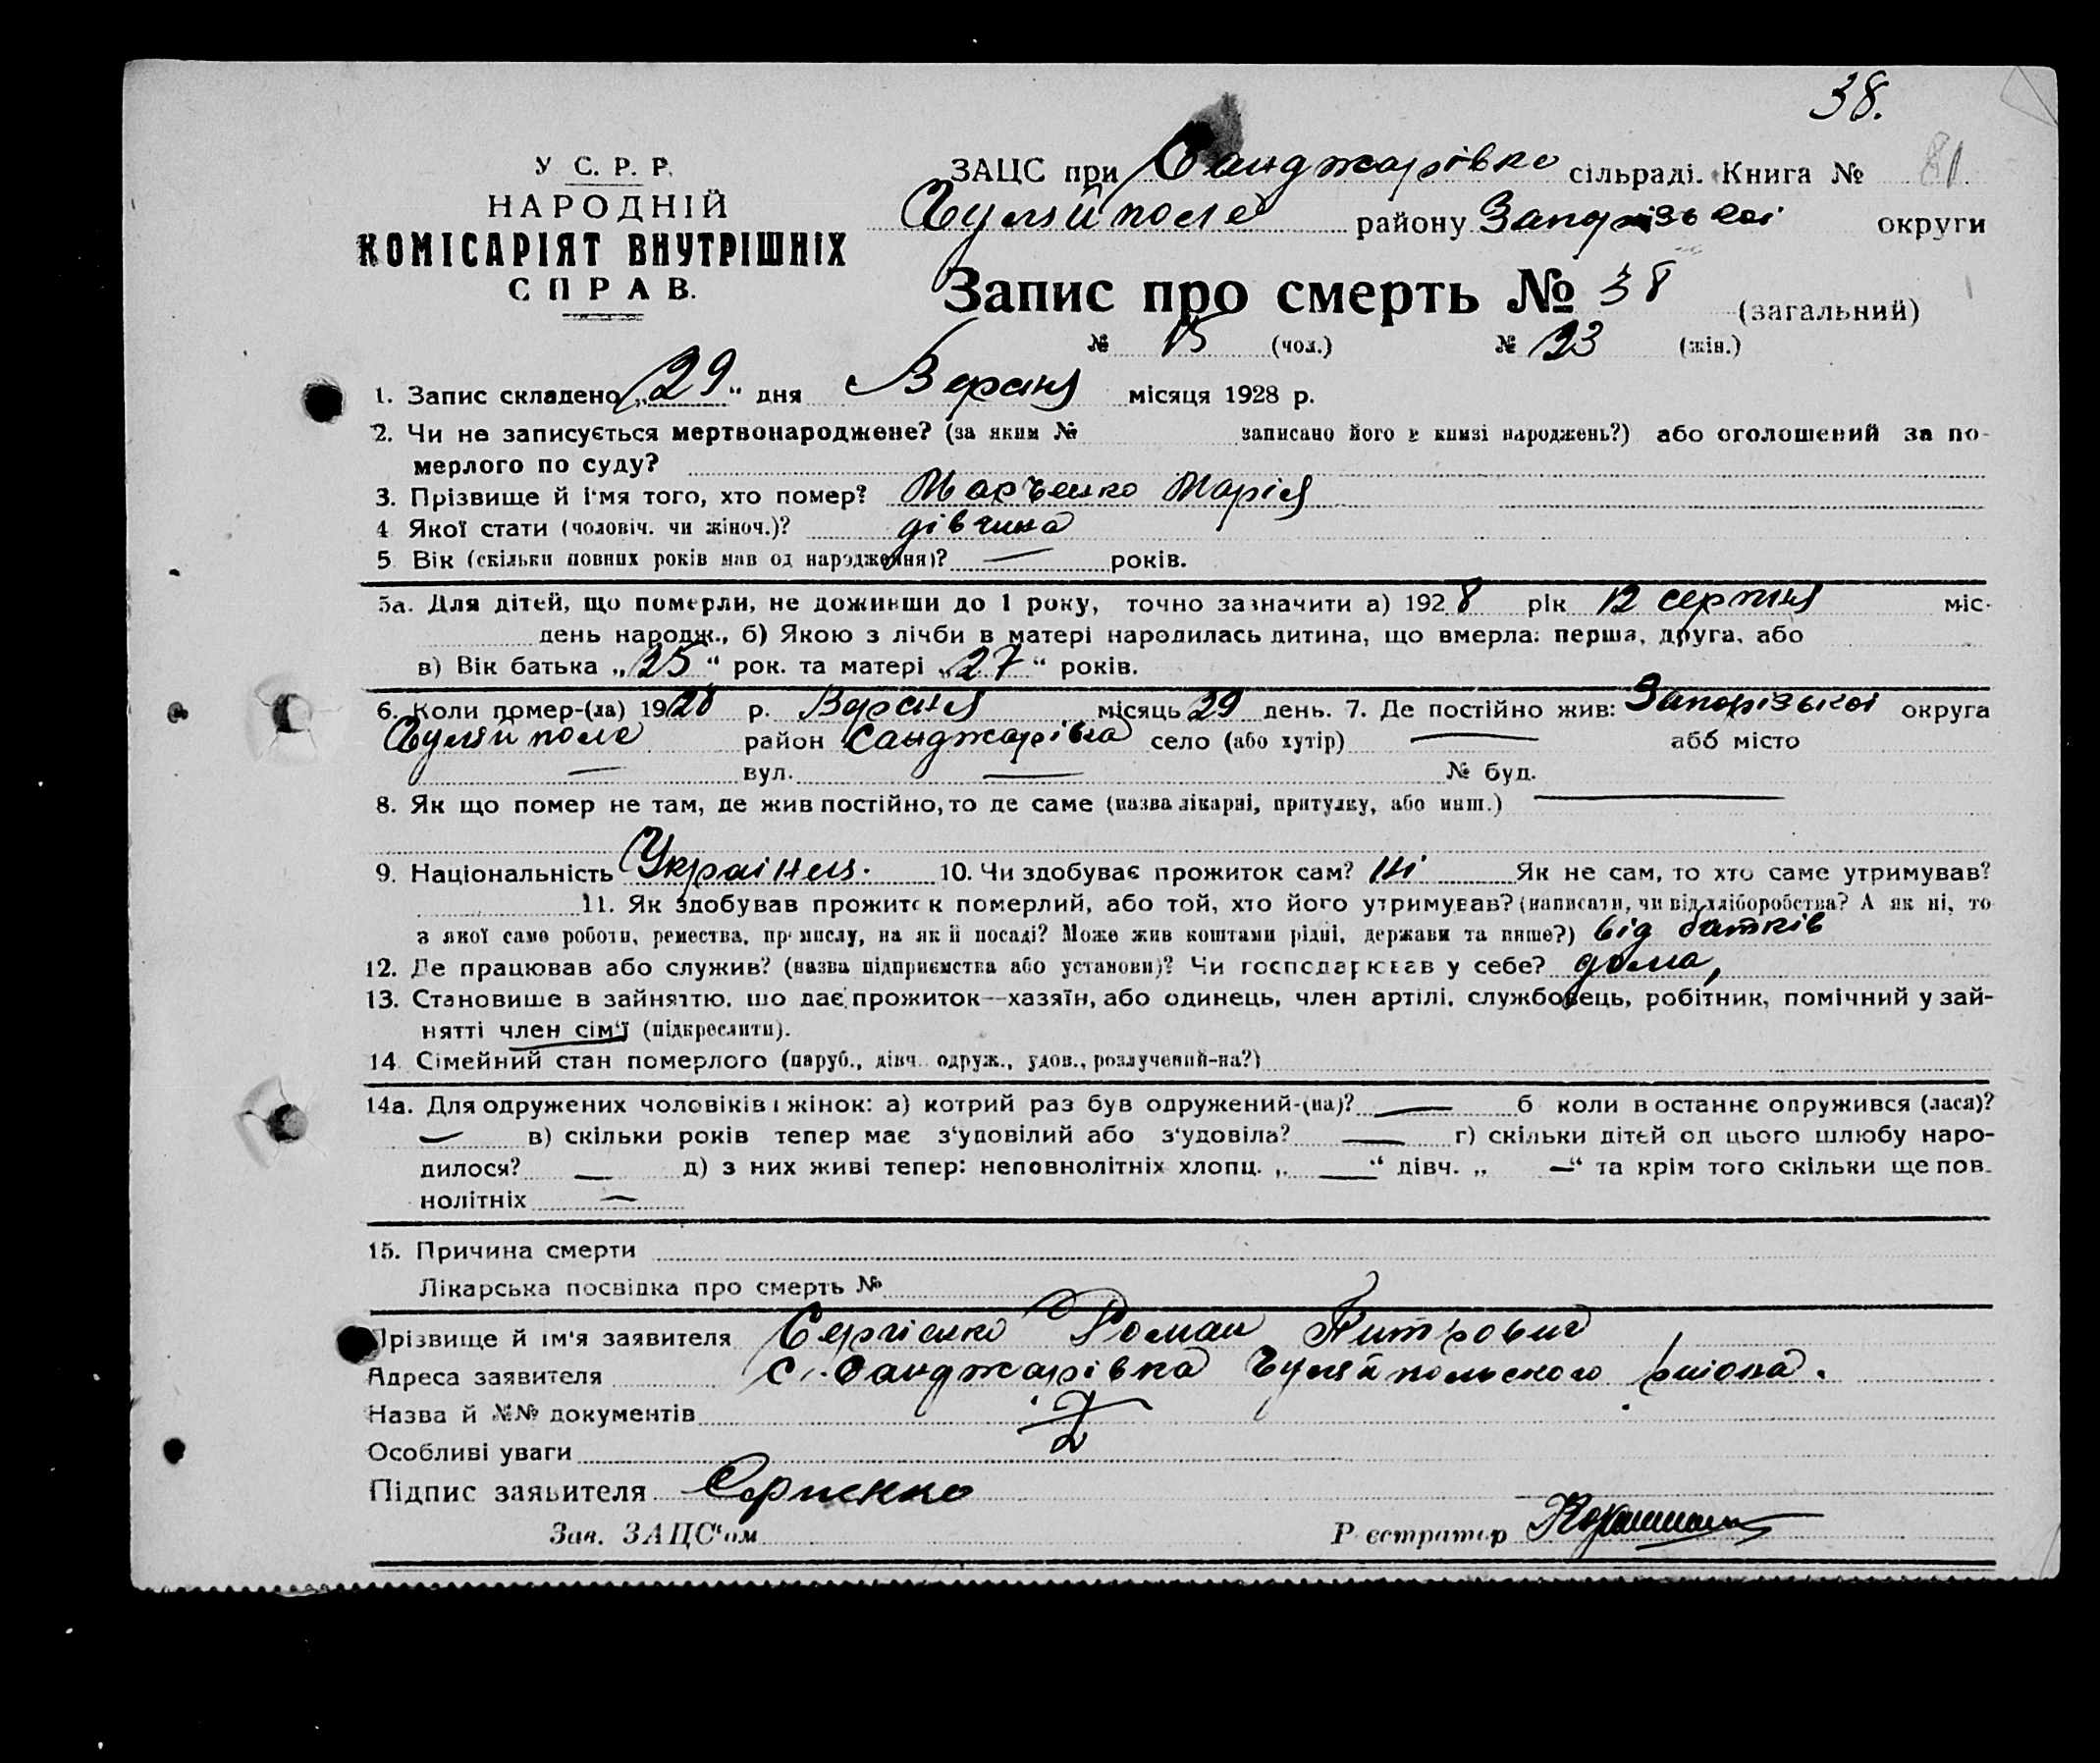 38.
У С. Р. Р.
НАРОДНІЙ
КОМІСАРІЯТ ВНУТРІШНІХ
СПРАВ.
ЗАЦС при Санджарівко сільраді. Книга № 81
Гуляйполе району Запорізької округи
Запис про смерть № 38 (загальний)
№ 15 (чол.) № 23 (жін.)
1. Запис складено „29“ дня Вересня місяця 1928 р.
2. Чи не записується мертвонароджене? (за яким № записано його в книзі народжень?) або оголошений за по-
мерлого по суду?
3. Прізвище й ім'я того, хто помер? Марія
4 Якої стати (чоловіч. чи жіноч.)? дівчина
5 Вік (скільки повних років мав од народження)? — років.
5а. Для дітей, що померли, не доживши до 1 року, точно зазначити а) 1928 рік 12 серпня міс.
день народж., б) Якою з лічби в матері народилась дитина, що вмерла: перша, друга, або
в) Вік батька „25“ рок. та матері „27“ років.
6. Коли помер-(ла) 1928 р. Вересня місяць 29 день. 7. Де постійно жив: Запорізької округа
Гуляйполе район Санджарівка село (або хутір) — або місто
— вул. — № буд.
8. Як що помер не там, де жив постійно, то де саме (назва лікарні, притулку, або инш.) —
9. Національність 10. Чи здобуває прожиток сам? ні Як не сам, то хто саме утримував?
11. Як здобував прожиток померлий, або той, хто його утримував? (написати, чи від хліборобства? А як ні, то
з якої саме роботи, ремества, промислу, на якій посаді? Може жив коштами рідні, держави та инше?) від батків
12. Де працював або служив? (назва підприємства або установи)? Чи господарював у себе? дома,
13. Становище в зайняттю, що дає прожиток—хазяїн, або одинець, член артілі, службовець, робітник, помічний у зай-
нятті член сім'ї (підкреслити).
14 Сімейний стан померлого (паруб., дівч. одруж., удов., розлучений-на?)
14а. Для одружених чоловіків і жінок: а) котрий раз був одружений-(на)? — б коли востаннє одружився (лася)?
— в) скільки років тепер має з'удовілий або з'удовіла? — г) скільки дітей од цього шлюбу наро-
дилося? — д) з них живі тепер: неповнолітніх хлопц. „—“ дівч. „—“ та крім того скільки ще пов-
нолітніх —
15. Причина смерти
Лікарська посвідка про смерть №
Прізвище й ім'я заявителя Сергієнко Роман
Адреса заявителя с. Санджарівка Гуляйпольского района.
Назва й №№ документів
Особливі уваги
Підпис заявителя
Зав. ЗАЦС'ом Реєстратор